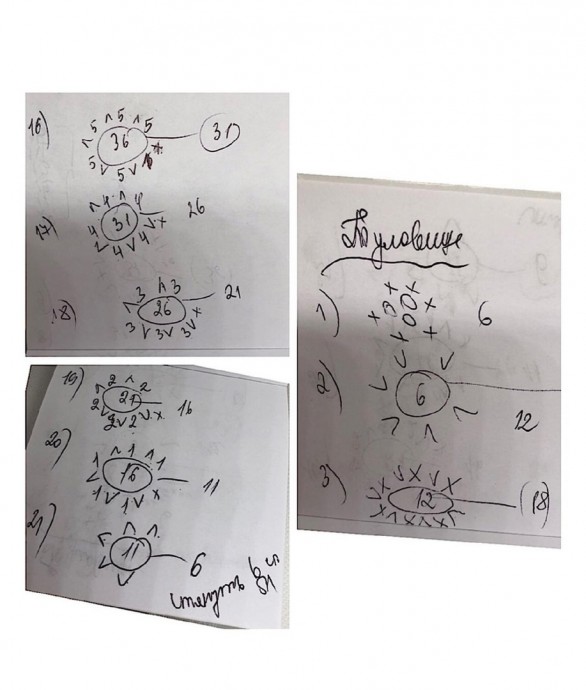 16) 36 31
5 5 5 5 5
17) 31 26
4 4 4 4 4
18) 26 21
3 3 3 3 3
19) 21 16
2 2 2 2 2
20) 16 11
1 1 1 1 1
21) 11 6
Туловище
1) 6
2) 6 12
3) 12 18